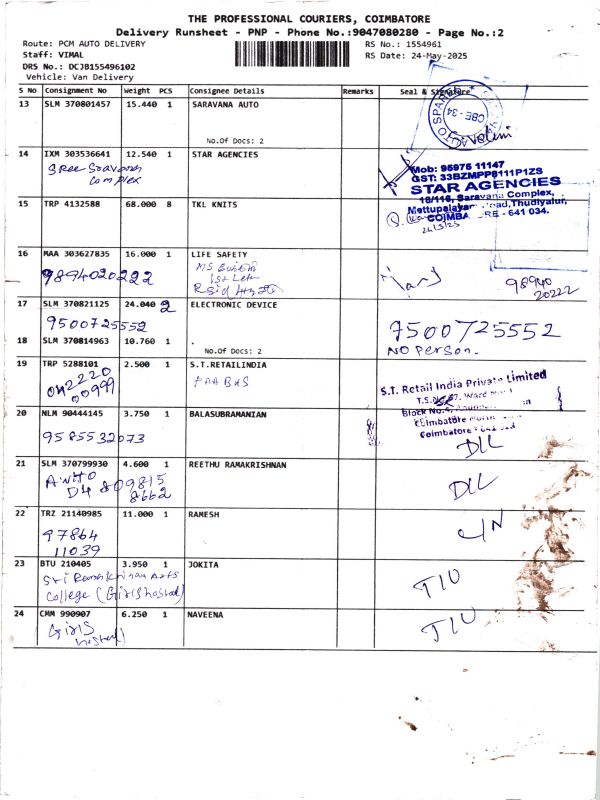 THE PROFESSIONAL COURIERS, COIMBATORE
Delivery Runsheet - PNP - Phone No.:9047080280 - Page No.:2
Route: PCM AUTO DELIVERY
RS No.: 1554961
Staff: VIMAL
RS Date: 24-May-2025
DRS No.: DCJB155496102
Vehicle: Van Delivery
S No Consignment No Weight PCS Consignee Details Remarks Seal & Signature
13 SLM 370801457 15.440 1 SARAVANA AUTO
No.Of Docs: 2
AUTO SPAR
CBE - 34
14 IXM 303536641 12.540 1 STAR AGENCIES
Sree Sravanas
Complex
Mob: 95975 11147
GST: 33BZMPP8111P1ZS
STAR AGENCIES
18/116, Saravana Complex,
Mettupalayam Road, Thudiyalur,
COIMBATORE - 641 034.
15 TRP 4132588 68.000 8 TKL KNITS
16 MAA 303627835 16.000 1 LIFE SAFETY
9894020222
98940
20222
17 SLM 370821125 24.040 2 ELECTRONIC DEVICE
9500725552
7500725552
NO Person.
18 SLM 370814963 10.760 1 .
No.Of Docs: 2
19 TRP 5288101 2.500 1 S.T.RETAILINDIA
042220
00999
S.T. Retail India Private Limited
20 NLM 90444145 3.750 1 BALASUBRAMANIAN
9585532073
Coimbatore
DIL
21 SLM 370799930 4.600 1 REETHU RAMAKRISHNAN
809815
8662
DIL
22 TRZ 21140985 11.000 1 RAMESH
97864
11039
23 BTU 210405 3.950 1 JOKITA
Sri Ramakrishnan Arts
College (Girls hostel)
TIU
24 CMM 990907 6.250 1 NAVEENA
Girls
hostel)
TIU